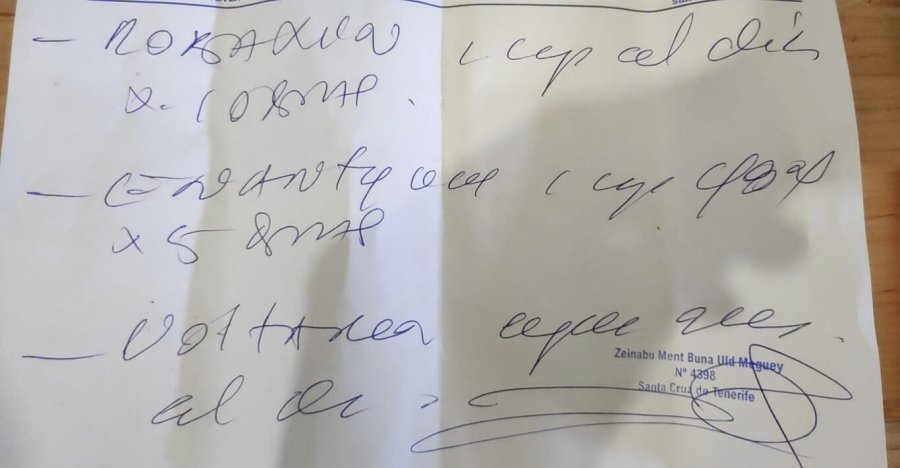 - ROBAXIN 1 cp al día
x 10 DIAS.
- ENANTYUM 1 cp c/8h
x 5 DIAS
- VOLTAREN
al día
Zeinabu Ment Buna Uld Meguey
Nº 4398
Santa Cruz de Tenerife